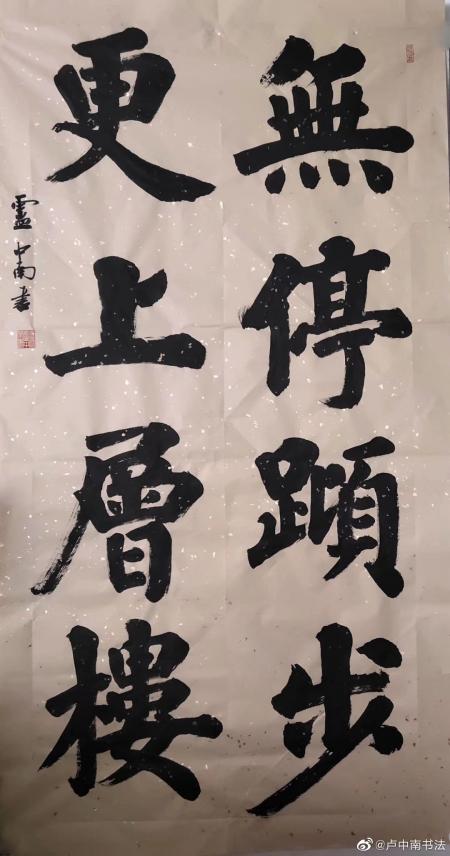 無停蹞步
更上層樓
盧中南書
@卢中南书法